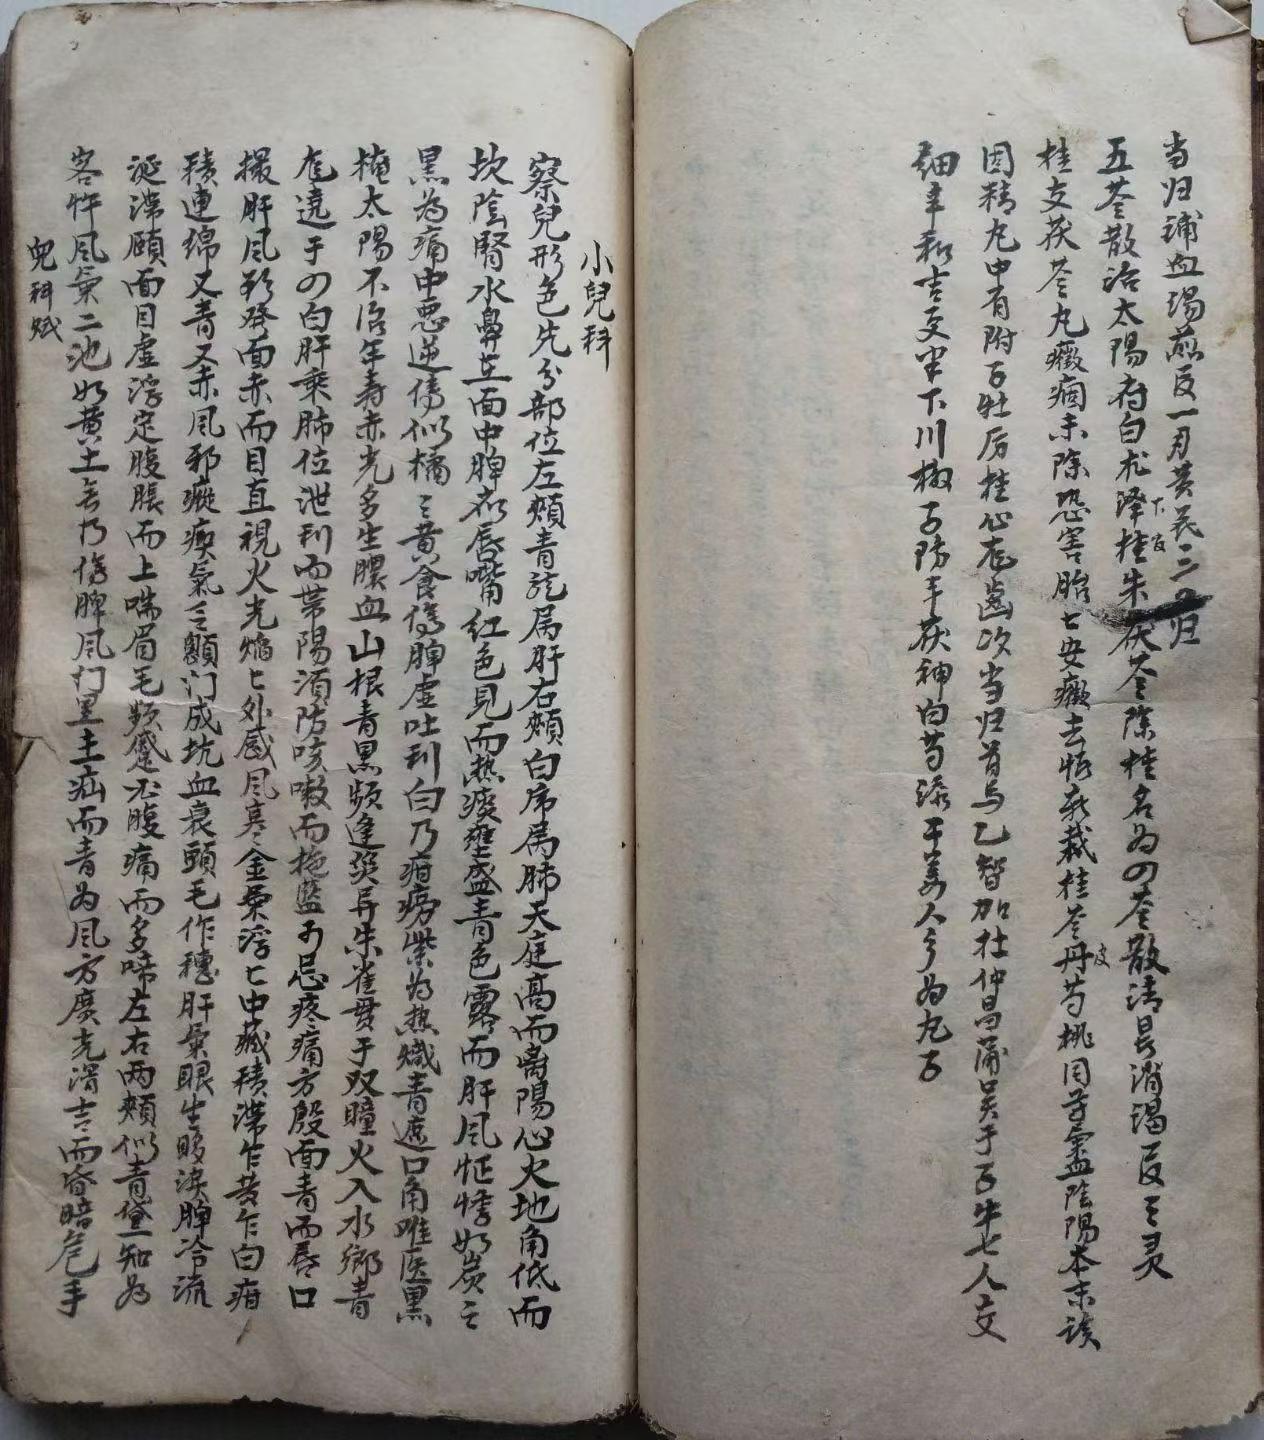 当归补血湯煎反一刃黄芪二の归
五苓散治太陽府白朮泽桂朱茯苓除桂名為の苓散清長消渴反三灵
下 反
桂支茯苓丸癥痼未除恐害胎匕安癥去悟新裁桂苓丹芍桃同等氣血陰陽本末该
皮
因精丸中有附子牡厉桂心龙齒次当归首乌乙智加杜仲昌蒲吴于子牛七人交
细辛和吉支半下川椒子防丰茯神白芍添干姜人今为丸子
小兒科
察兒形色先分部位左頰青龙属肝右頰白虎属肺天庭高而离陽心火地角低而
坎陰腎水鼻在面中脾应唇嘴红色見而熱痰壅盛青色露而肝风怔悸如炭之
黑為痛中恶逆傳似橘之黄食傷脾虚吐利白乃疳痨紫為热熾青遮口角难医黑
掩太陽不治年寿赤光多生膿血山根青黑频逢災异朱雀贯于双瞳火入水鄉青
龙遶于の白肝乘肺位泄利而带陽須防咳嗽而拖藍可忌疼痛方殷面青而唇口
撮肝风欲發面赤而目直視火光焰匕外感风寒金氣浮匕中藏積滞乍黄乍白疳
積連绵又青又赤风邪瘛瘲氣乏顖门成坑血衰頭毛作穗肝氣眼生眵淚脾冷流
涎滞頤面目虚浮定腹脹而上喘眉毛频蹙必腹痛而多啼左右两頰似青黛知为
客忤风氣二池如黄土无乃傷脾风门黑主疝而青为风方廣光滑吉而昏暗危手
兒科赋